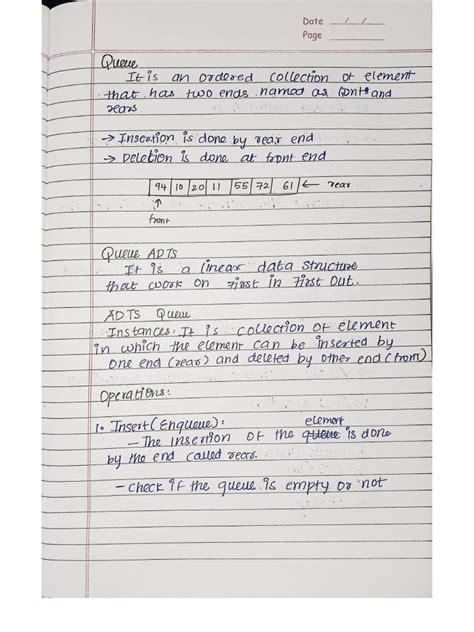 Date __/__/__
Page ______
Queue
It is an ordered collection of element
that has two ends named as front and
rears
→ Insertion is done by rear end
→ Deletion is done at front end
94 10 20 11 55 72 61 ← rear
↑
front
Queue ADTS
It is a linear data structure
that work on First in First Out.
ADTS Queue
Instances: It is collection of element
in which the element can be inserted by
one end (rear) and deleted by other end (front)
Operations:
1. Insert (Enqueue):
element
– The insertion of the queue is done
by the end called rear.
– check if the queue is empty or not